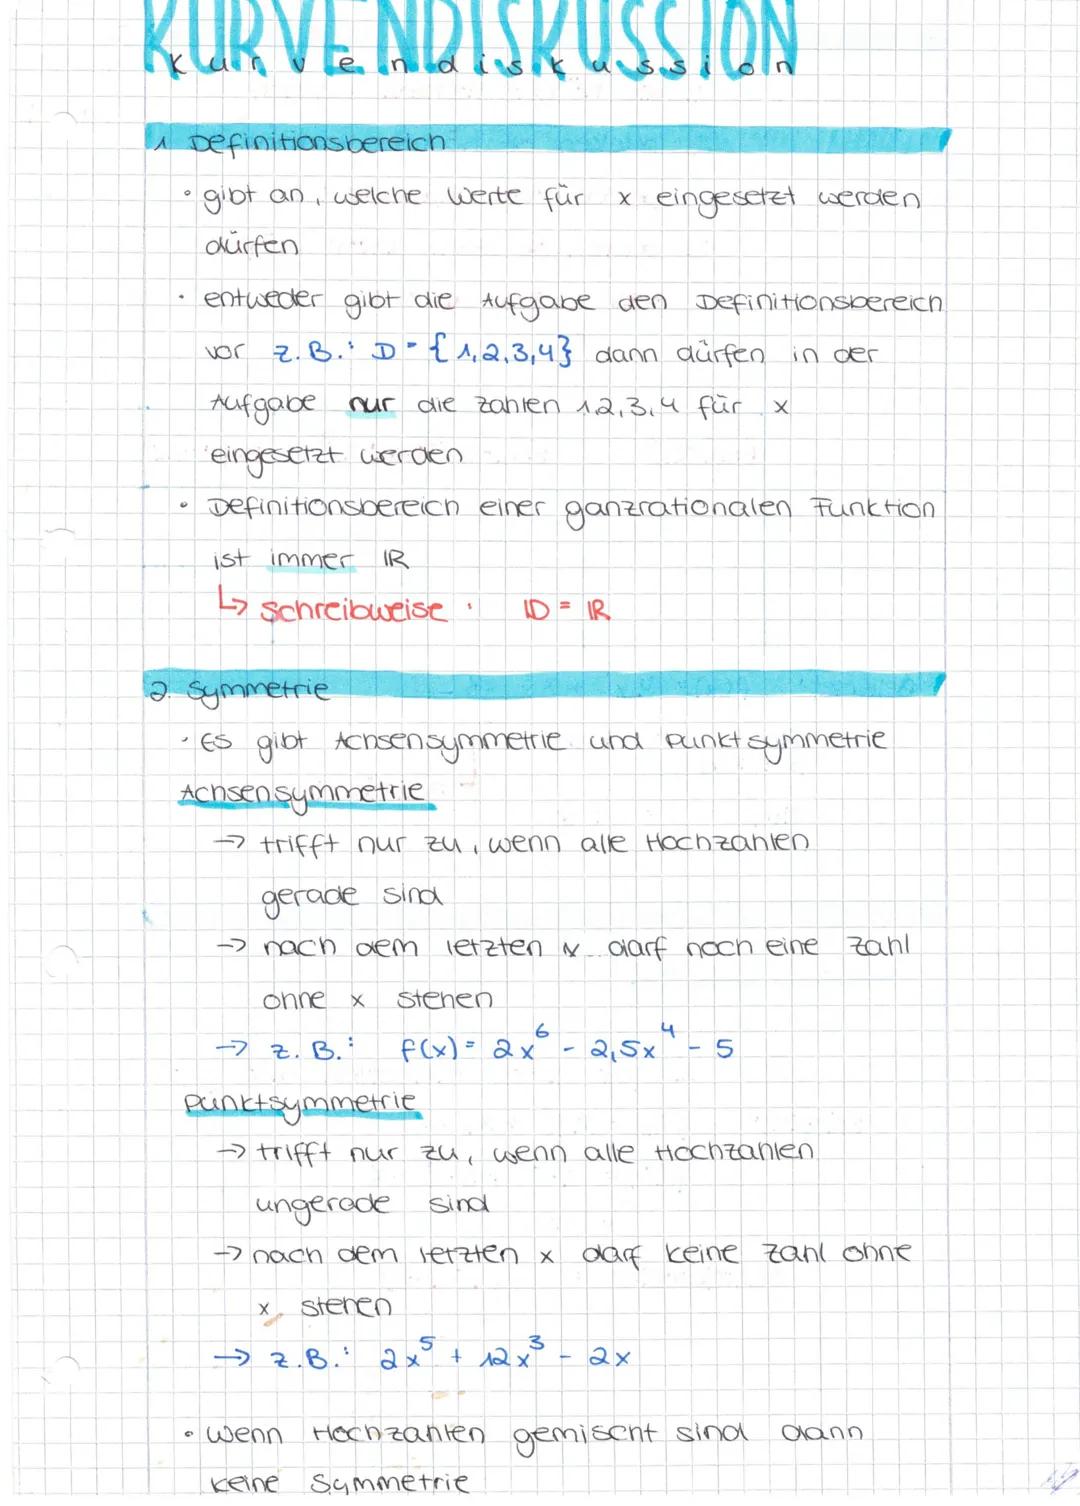 KURVENDISKUSSION
Kurvendiskussion
1 Definitionsbereich
• gibt an, welche Werte für x eingesetzt werden
dürfen
• entweder gibt die Aufgabe den Definitionsbereich
vor z.B.: D = {1,2,3,4} dann dürfen in der
Aufgabe nur die Zahlen 1,2,3,4 für x
eingesetzt werden
• Definitionsbereich einer ganzrationalen Funktion
ist immer ℝ
↳ Schreibweise: 𝔻 = ℝ
2. Symmetrie
• Es gibt Achsensymmetrie und Punktsymmetrie
Achsensymmetrie
→ trifft nur zu, wenn alle Hochzahlen
gerade sind
→ nach dem letzten x darf noch eine Zahl
ohne x stehen
→ z.B.: f(x) = 2x⁶ - 2,5x⁴ - 5
Punktsymmetrie
→ trifft nur zu, wenn alle Hochzahlen
ungerade sind
→ nach dem letzten x darf keine Zahl ohne
x stehen
→ z.B.: 2x⁵ + 12x³ - 2x
• wenn Hochzahlen gemischt sind dann
keine Symmetrie